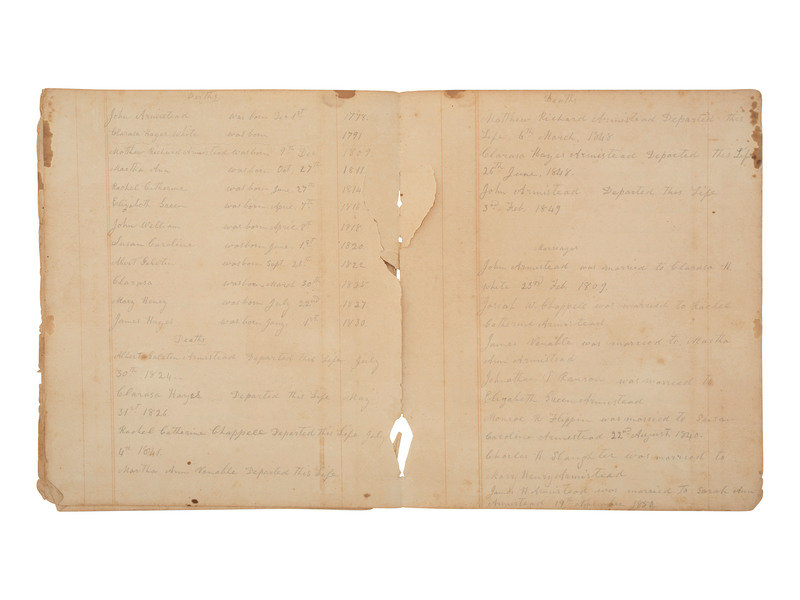 Deaths
John Armistead was born Dec 1st 1778
Clarasa Hayes White was born 1791
Mathew Richard Armistead was born 9th Dec 1809
Martha Ann was born Oct 27th 1811
Rachel Catherine was born June 27th 1814
Elizabeth Green was born Apr. 7th
John William was born Apr. 8th 1818
Susan Caroline was born June 1st 1820
was born Sept. 21st 1822
Clarasa was born March 30th 1825
Mary Henry was born July 22nd 1827
James Hayes was born Jany. 1st 1830
Deaths
Albert Armistead Departed this Life July
30th 1824
Clarasa Hayes Departed this Life May
31st 1826
Rachel Catherine Chappell Departed this Life
4th 1841
Martha Ann Venable Departed this Life
Deaths
Mathew Richard Armistead Departed this
Life 6th March, 1848
Clarasa Hayes Armistead Departed this Life
26th June, 1848
John Armistead Departed this Life
3rd Feb 1849
Marriages
John Armistead was married to Clarasa H.
White 25th Feb 1809
Josiah W Chappell was married to Rachel
Catherine Armistead
James Venable was married to Martha
Ann Armistead
Johnathan was married to
Elizabeth Green Armistead
Monroe was married to Susan
Caroline Armistead 22nd August 1840.
Charles H Slaughter was married to
Mary Henry Armistead
James H Armistead was married to Sarah Ann
Armistead 19th November